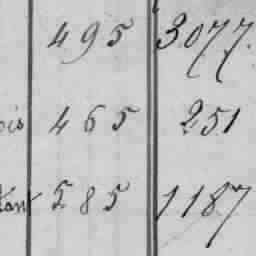 495 3077.
ois 465 251
tant 585 1187